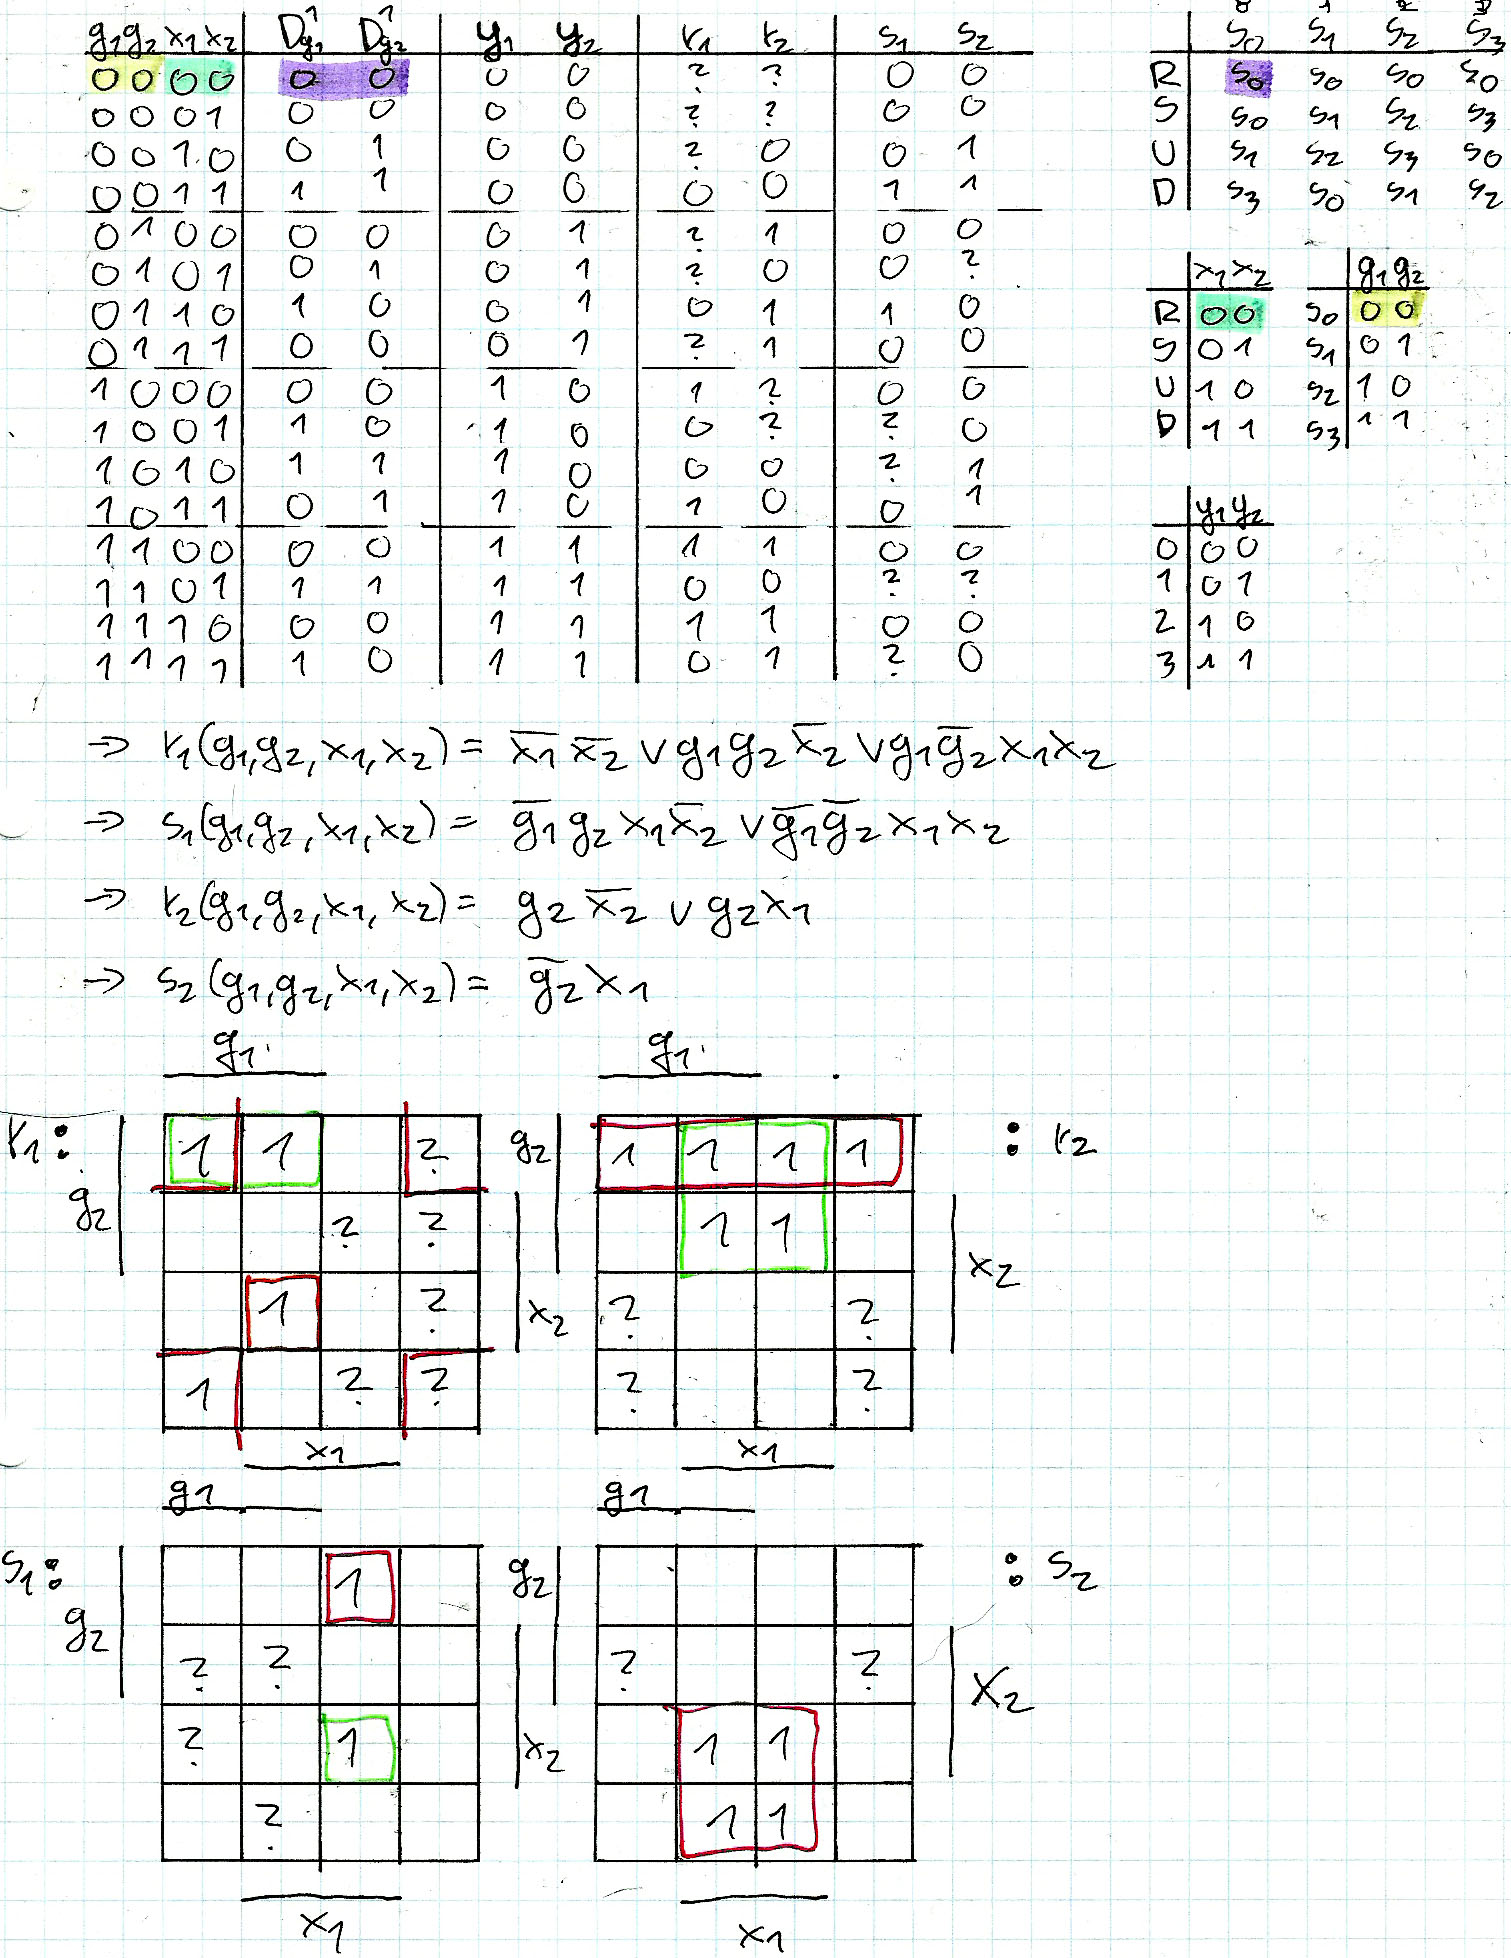 g1 g2 x1 x2 | D^1_g1 D^1_g2 | y1 y2 | r1 r2 | s1 s2
0 0 0 0 | 0 0 | 0 0 | ? ? | 0 0
0 0 0 1 | 0 0 | 0 0 | ? ? | 0 0
0 0 1 0 | 0 1 | 0 0 | ? 0 | 0 1
0 0 1 1 | 1 1 | 0 0 | 0 0 | 1 1
0 1 0 0 | 0 0 | 0 1 | ? 1 | 0 0
0 1 0 1 | 0 1 | 0 1 | ? 0 | 0 ?
0 1 1 0 | 1 0 | 0 1 | 0 1 | 1 0
0 1 1 1 | 0 0 | 0 1 | ? 1 | 0 0
1 0 0 0 | 0 0 | 1 0 | 1 ? | 0 0
1 0 0 1 | 1 0 | 1 0 | 0 ? | ? 0
1 0 1 0 | 1 1 | 1 0 | 0 0 | ? 1
1 0 1 1 | 0 1 | 1 0 | 1 0 | 0 1
1 1 0 0 | 0 0 | 1 1 | 1 1 | 0 0
1 1 0 1 | 1 1 | 1 1 | 0 0 | ? ?
1 1 1 0 | 0 0 | 1 1 | 1 1 | 0 0
1 1 1 1 | 1 0 | 1 1 | 0 1 | ? 0
S0 S1 S2 S3
R | S0 S0 S0 S0
S | S0 S1 S2 S3
U | S1 S2 S3 S0
D | S3 S0 S1 S2
x1 x2
R | 0 0
S | 0 1
U | 1 0
D | 1 1
g1 g2
S0 | 0 0
S1 | 0 1
S2 | 1 0
S3 | 1 1
y1 y2
0 | 0 0
1 | 0 1
2 | 1 0
3 | 1 1
→ r1(g1,g2,x1,x2) = x̅1 x̅2 ∨ g1 g2 x̅2 ∨ g1 g̅2 x1 x2
→ s1(g1,g2,x1,x2) = g̅1 g2 x1 x̅2 ∨ g̅1 g̅2 x1 x2
→ r2(g1,g2,x1,x2) = g2 x̅2 ∨ g2 x1
→ s2(g1,g2,x1,x2) = g̅2 x1
g1
r1:
g2
1 1 ?
? ?
1 ?
1 ? ?
x2
x1
g1
g2
: r2
1 1 1 1
1 1
? ?
? ?
x2
x1
g1
s1:
g2
1
? ?
? 1
?
x2
x1
g1
g2
: s2
? ?
1 1
1 1
x2
x1